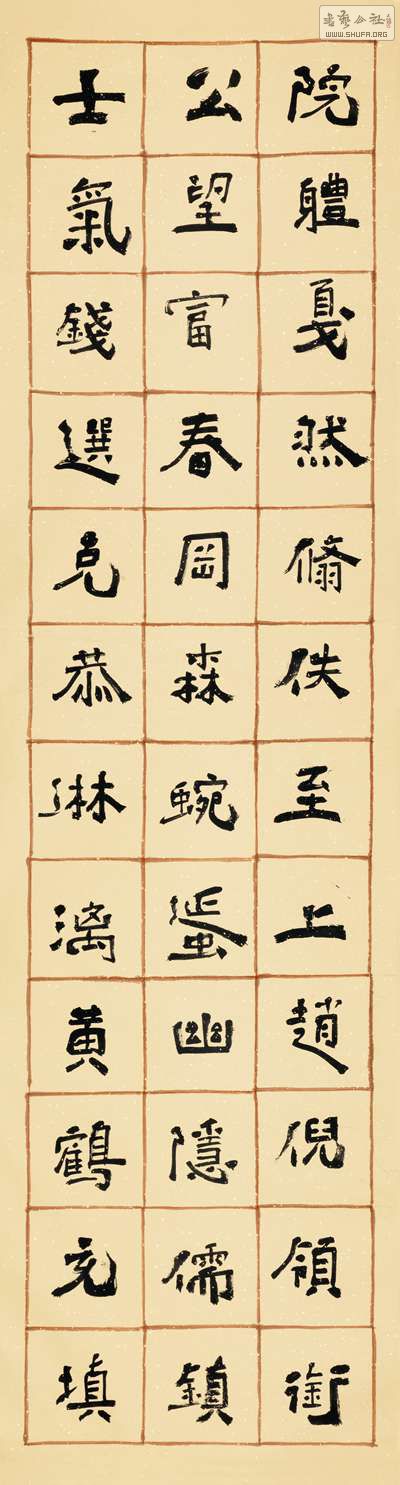 書藝公社
WWW.SHUFA.ORG
院體戛然翛佚至上趙倪領銜
公望富春岡森蜿蜒幽隱儒鎮
士氣錢選克恭淋漓黃鶴充填